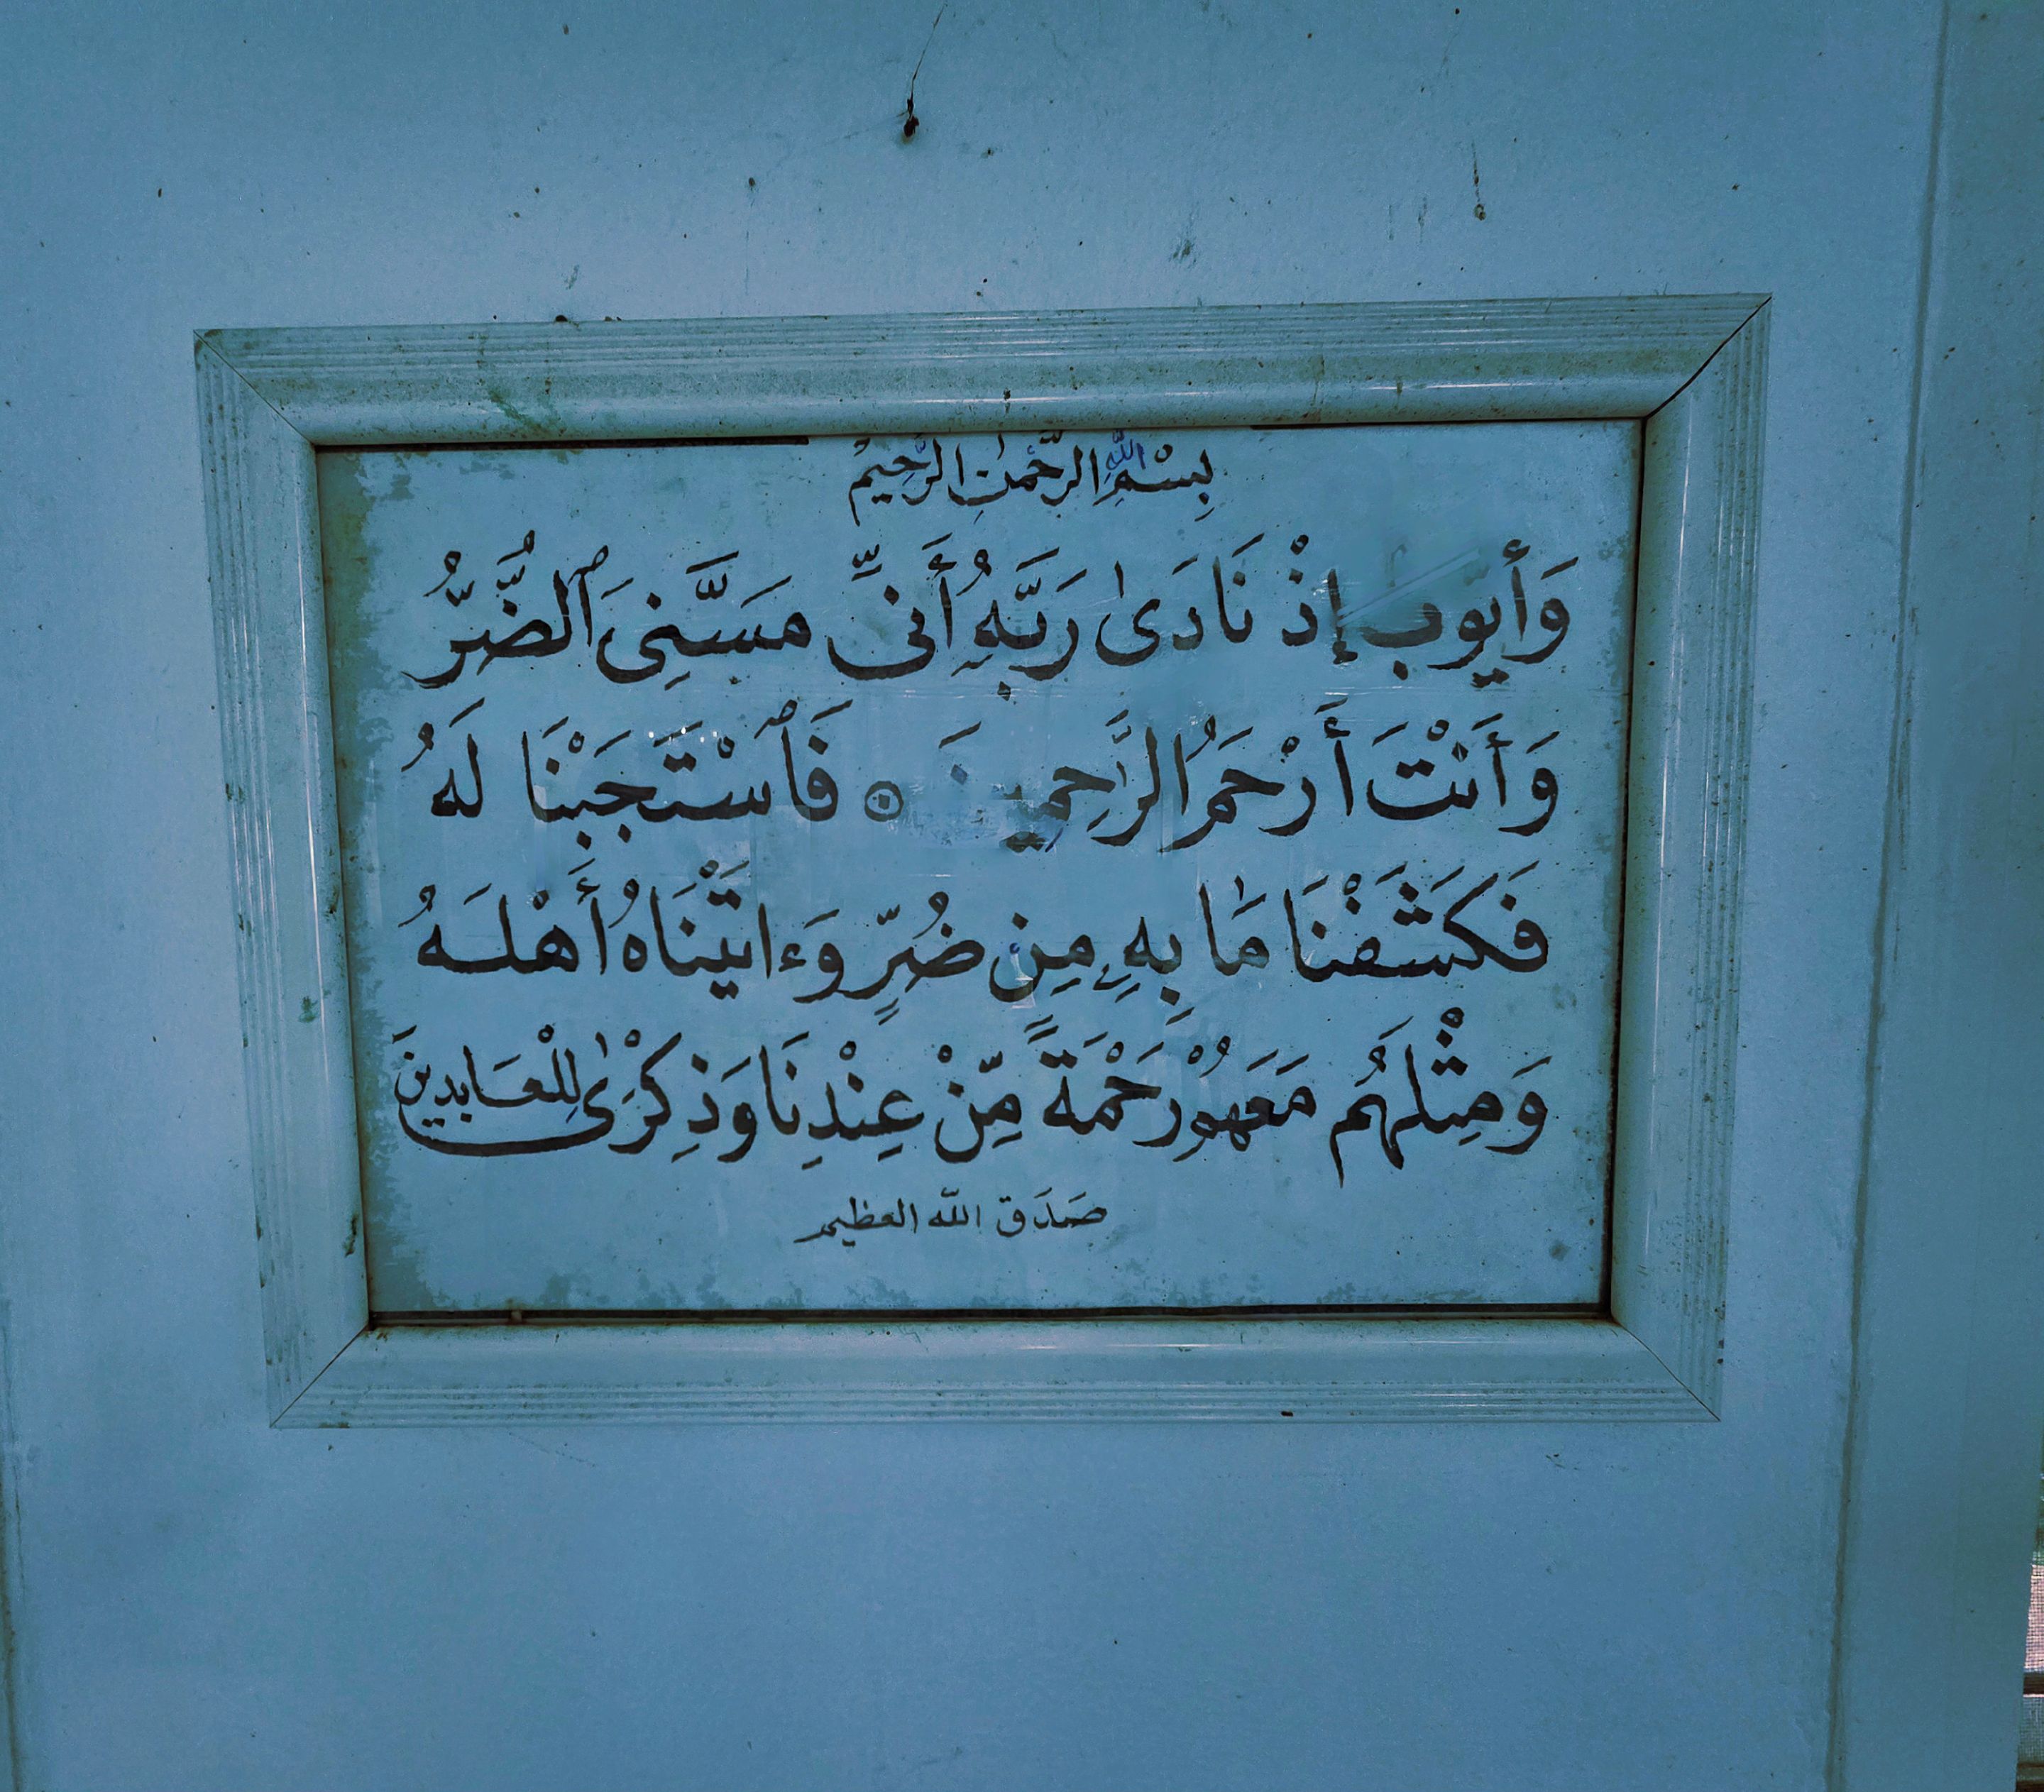 بِسْمِ اللّٰهِ الرَّحْمٰنِ الرَّحِيمِ
وَأَيُّوبَ إِذْ نَادَىٰ رَبَّهُ أَنِّي مَسَّنِيَ ٱلضُّرُّ
وَأَنْتَ أَرْحَمُ الرَّاحِمِينَ ۝ فَٱسْتَجَبْنَا لَهُ
فَكَشَفْنَا مَا بِهِ مِن ضُرٍّ وَءَاتَيْنَاهُ أَهْلَهُ
وَمِثْلَهُم مَعَهُمْ رَحْمَةً مِّنْ عِنْدِنَا وَذِكْرَىٰ لِلْعَابِدِينَ
صَدَقَ اللّه العظيم